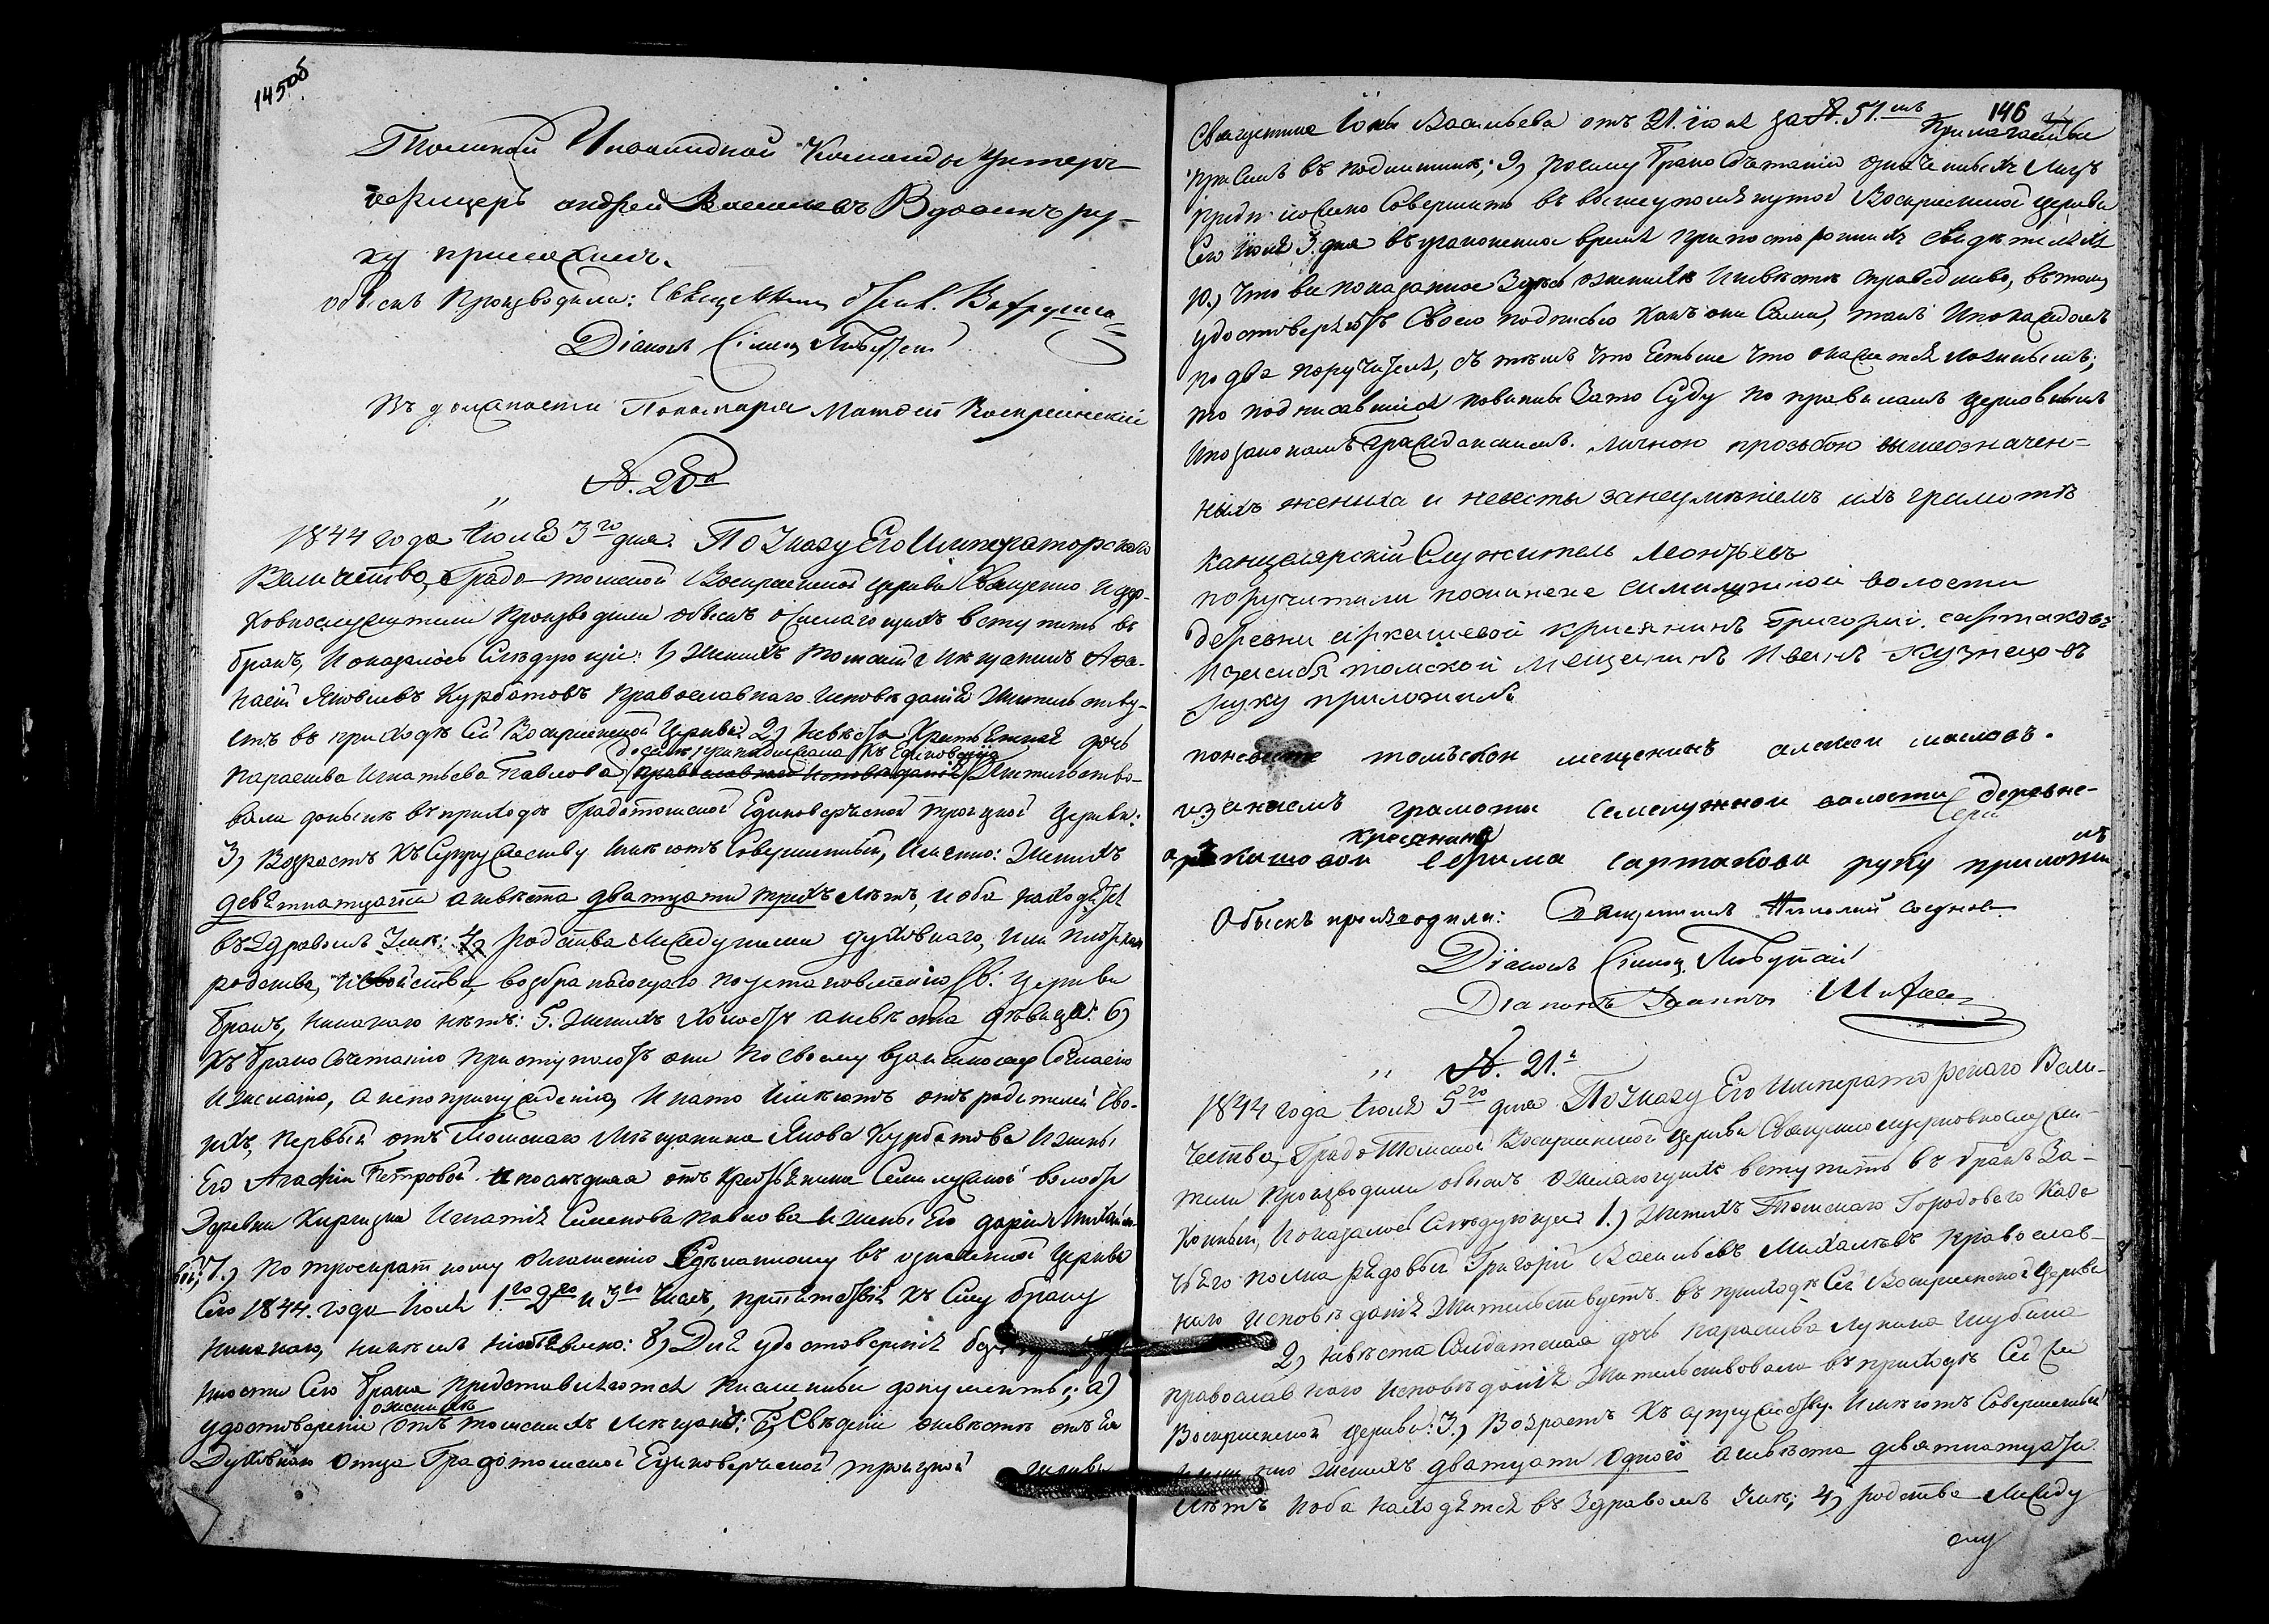 145об
Томской Инвалидной Команды Унтеръ-
Афицеръ андрей Васильевъ Вдовинъ ру-
ку приложилъ.
Обыскъ Производили: Священникъ
Діаконъ Сімеонъ
Въ должности Пономаря Матвей Воскресенскій
№. 20й
1844 года Іюля 3го дня. По Указу Его Императорскаго
Величества, Градо-томской Воскресенской церкви Священно и цер-
ковнослужители производили обыскъ о желающихъ вступить въ
бракъ, и оказалось следующее: 1, Женихъ томскій мещанинъ Афа-
насій Яковлевъ Курбатовъ Православнаго исповеданія жительству-
етъ въ приходѣ Сей Воскресенской Церкви. 2, Невѣста Крестьянская дочь
доселѣ принадлежала къ Единоверію
Параскева Игнатьева Павлова православнаго исповеданія Жительство-
вала донынѣ въ приходѣ Градотомской Единоверческой троицкой церкви:
3, Возрастъ къ Супружеству имѣютъ Совершенный, Именно: Женихъ
девятнатцати а невѣста дватцати трехъ лѣтъ, и оба находятся
въ здравомъ умѣ: 4, родства между ними духовнаго, или плотскаго
родства, и Свойства, возбраняющаго по установленію Св: Церкви
бракъ, никакого нѣтъ: 5. Женихъ холостъ а невѣста дѣвица: 6,
Къ бракосочетанію приступаютъ они по своему взаимному Согласію
и желанію, а не по принужденію, и на то имѣютъ отъ родителей сво-
ихъ, первый отъ Томскаго Мѣщанина Якова Курбатова и жены
Его Агафіи Петровой и последняя отъ крестьянина Семилужной волости
Деревни Киргизки Игнатія Семенова Павлова и жены Его даріи Михайло-
вой; 7.) По троекратному оглашенію Сдѣланному въ означенной Церкви
Сего 1844. года Іюля 1.го 2го и 3го чиселъ, препятствія къ Сему браку
никакого, никемъ не объявлено: 8, Для удостоверенія
ности Сего брака представляются письменные документы; а)
о женихѣ
удостовереніе отъ томскихъ мѣщанъ: б, Сведеніе о невѣстѣ отъ Ея
Духовнаго Отца Градотомской Единоверческой троицкой церкви
146
Священника Іоны Васильева отъ 21. Іюня за №. 51.мъ Прилагаемые
при семъ въ подлинникѣ; 9, Посему бракосочетаніе означенныхъ лицъ
предположено Совершить въ вышеупомянутой Воскресенской церкви
Сего Іюля 3. дня въ узаконенное время при постороннихъ свидѣтеляхъ
10.) Что все показанное Здесь о женихѣ и невѣстѣ справедливо, въ томъ
удостоверяютъ Своею подписью какъ они Сами, такъ и по каждомъ
по два поручителя, съ тѣмъ что Естьли что окажется ложнымъ;
то подписавшіися повинны за то Суду по правиламъ церковнымъ
и по законамъ Гражданскимъ. личною прозьбою вышеозначен-
ныхъ жениха и невесты за неумѣніемъ ихъ грамотѣ
канцелярскій Служитель Леонтьевъ
поручители по женихе симилужной волости
деревни аркашевой крисянинъ Григорій. сартаковъ
И за себя томской мещенинъ Иванъ Кузнецовъ
руку приложилъ
по невѣсте томьскои мещенинъ алексеи масловъ.
и за нанемъ грамоты Семелужнои валости деревне-
кресянина
аркашовои ефима сартакова руку приложилъ
Обыскъ производили: Священникъ Николай
Діаконъ Сімеонъ
Діаконъ Іоаннъ
№. 21.й
1844 года Іюля 5го дня По Указу Его Императорскаго Вели-
чества, Градо Томской Воскресенской церкви Священно и церковнослужи-
тели производили обыскъ о желающихъ вступить въ бракъ За-
конный, и оказалось Следующее: 1.) Женихъ Томскаго Городоваго Каза-
чьяго полка рядовый Григорій Васильевъ Михалевъ православ-
наго исповеданія Жительствуетъ въ приходѣ Сей Воскресенской Церкви
2, Невѣста Солдатская дочь Параскева Лукина Шубина
православнаго исповѣданія Жительствовала въ приходѣ Сей же
Воскресенской церкви: 3.) Возрастъ къ супружеству Имѣютъ Совершенный
Именно женихъ дватцати одного а невѣста девятнатцати
лѣтъ и оба находятся въ здравомъ умѣ; 4, родства между